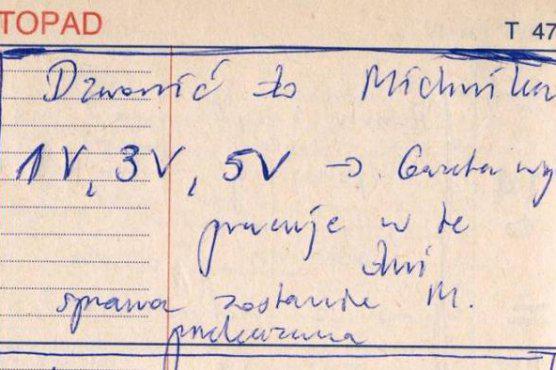 TOPAD
T 47
Dzwonić do Michnika
1 V, 3 V, 5 V → Gazeta wy
pracuje w te
dni
sprawa zostanie M.
przekazana